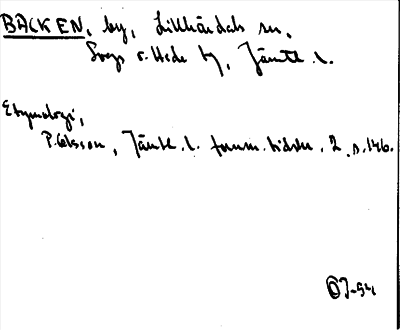 BACKEN, by, Lillhärdals sn,
Svegs o. Hede tg, Jämtl. l.
Etymologi,
P. Olsson, Jämtl. l. fornm. tidskr. 2, s. 146.
OJ-54